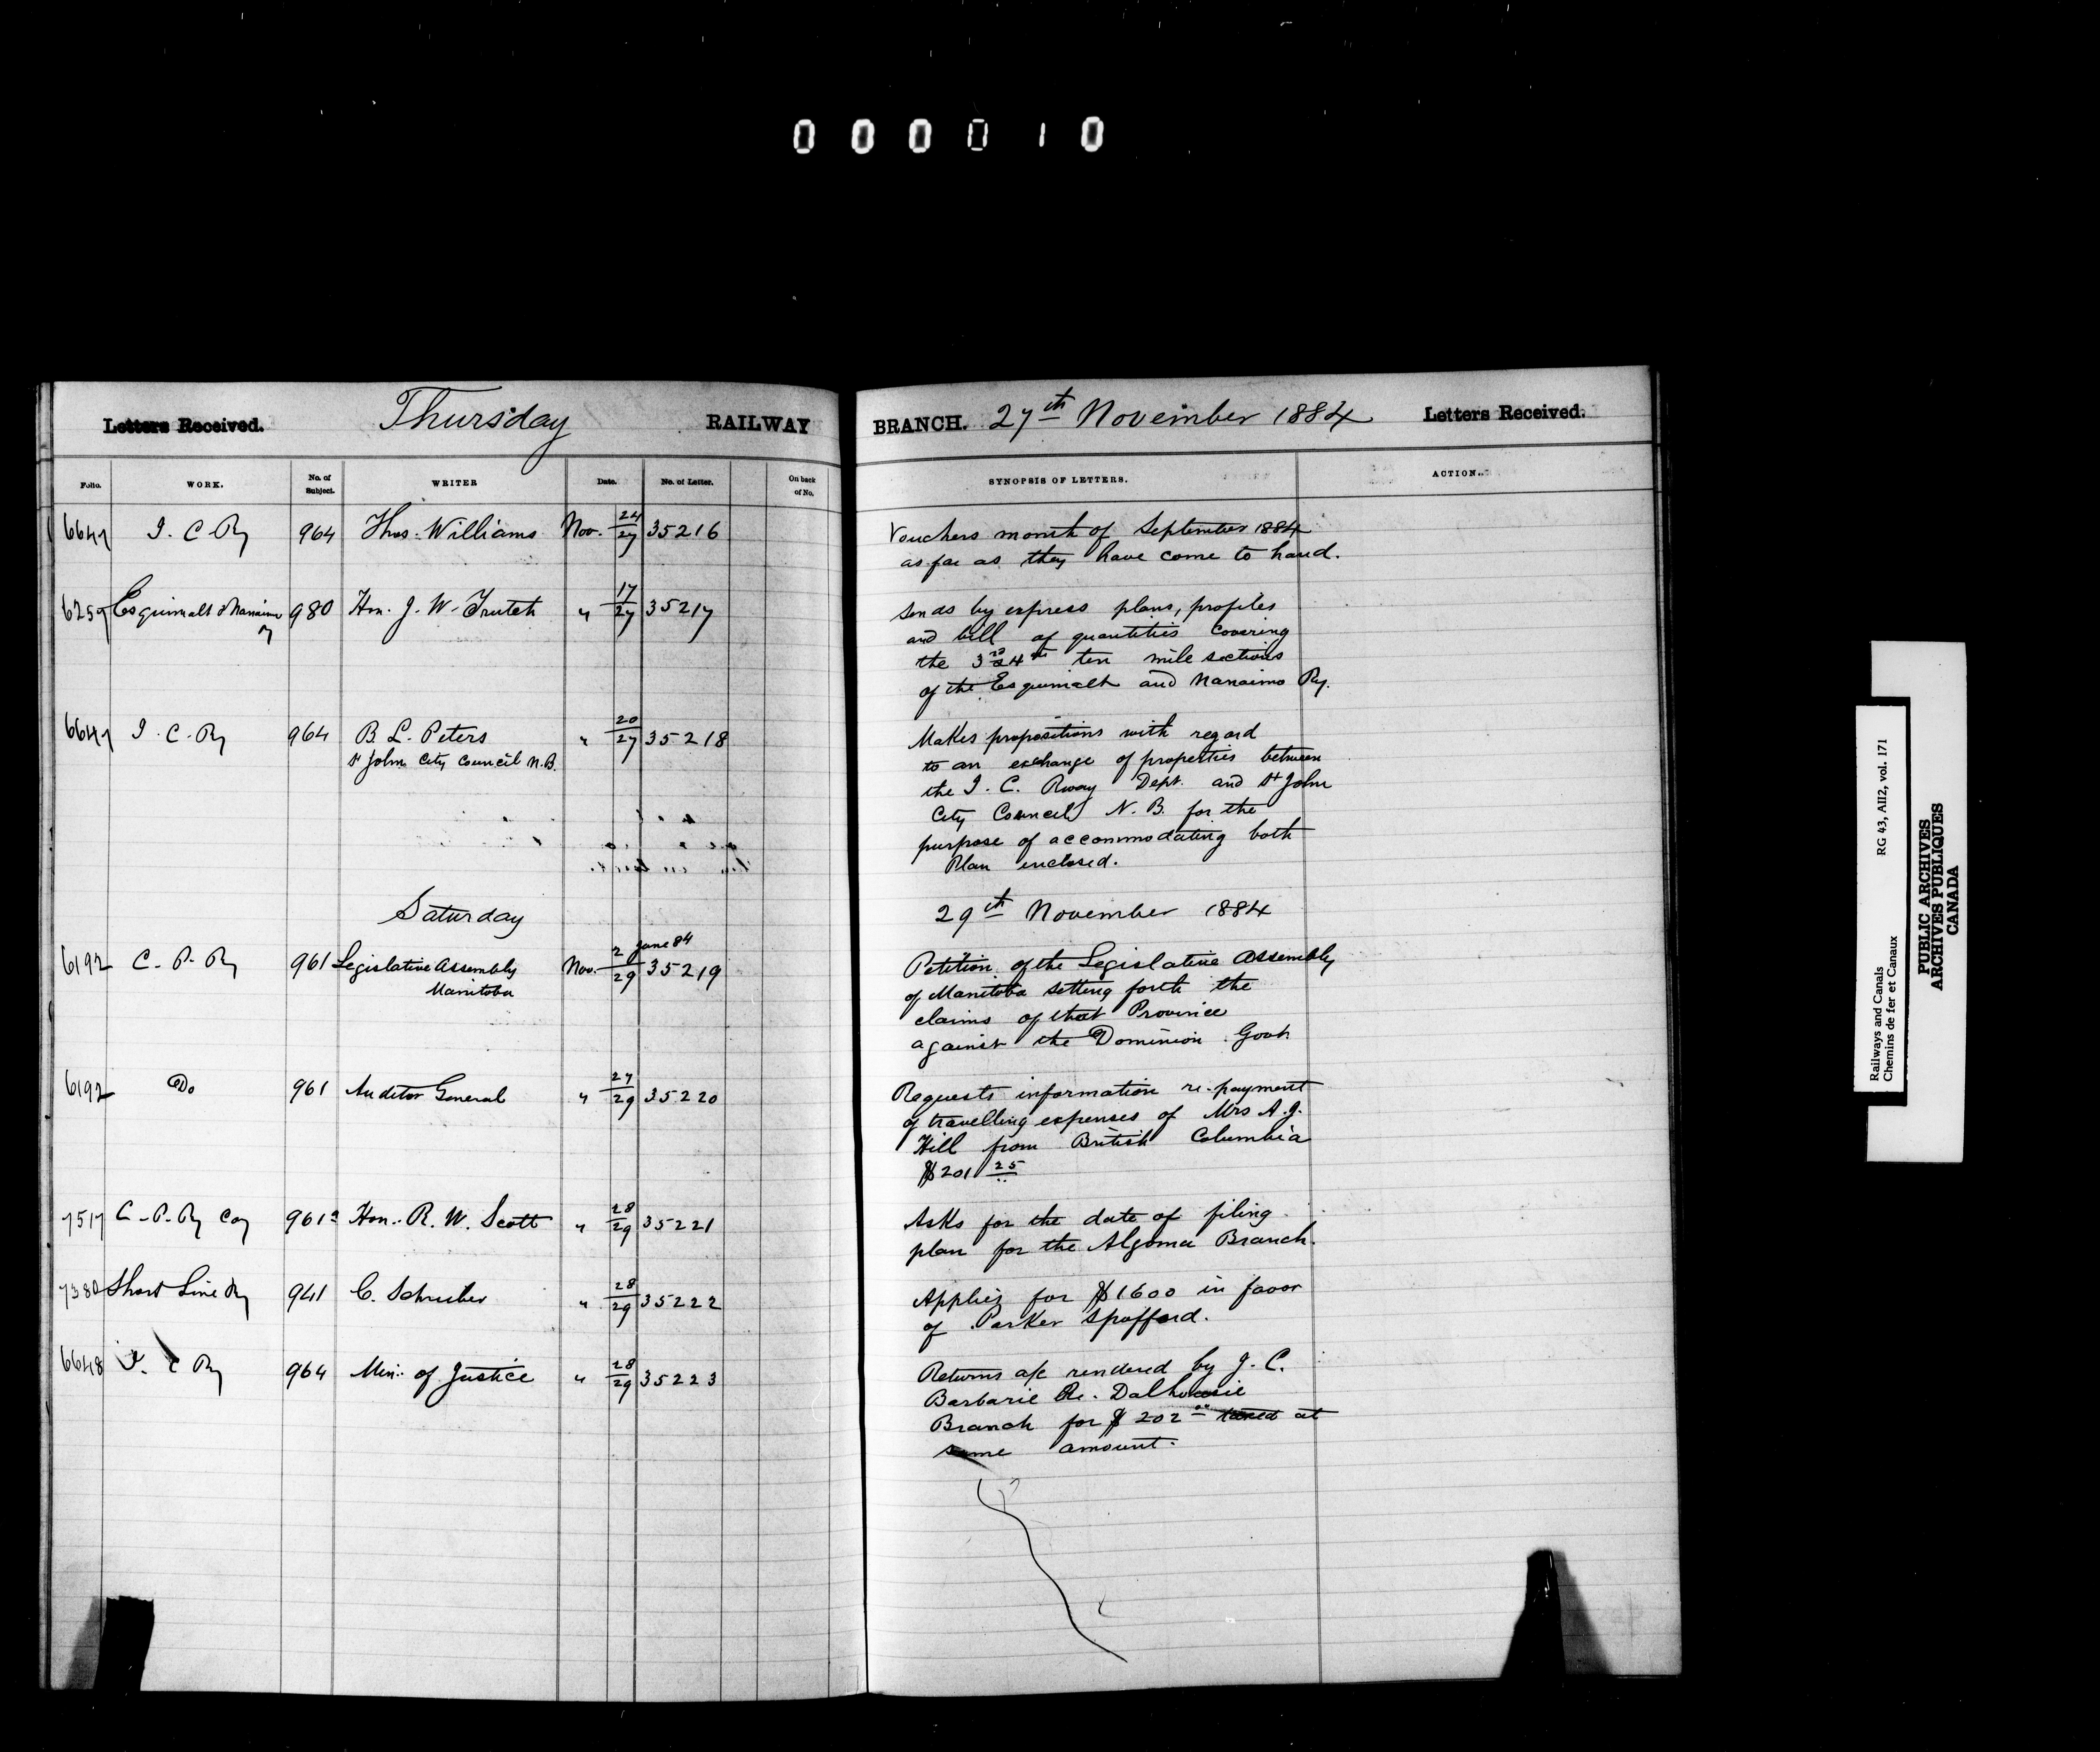 000010
Letters Received. Thursday RAILWAY BRANCH. 27th November 1884 Letters Received.
Folio. WORK. No. of Subject. WRITER Date. No. of Letter. On back of No. SYNOPSIS OF LETTERS. ACTION.
6647 I. C Ry 964 Thos. Williams Nov. 24/27 35216 Vouchers month of September 1884
as far as they have come to hand.
6259 Esquimalt & Nanaimo Ry 980 Hon. J. W. Trutch " 17/27 35217 Sends by express plans, profiles
and bill of quantities covering
the 3rd & 4th ten mile sections
of the Esquimalt and Nanaimo Ry.
6647 I. C. Ry 964 B. L. Peters " 20/27 35218 Makes propositions with regard
St John City Council N.B. to an exchange of properties between
the I. C. Rway Dept. and St John
City Council N. B. for the
purpose of accommodating both
Plan enclosed.
Saturday 29th November 1884
6192 C. P. Ry 961 Legislative Assembly Nov. 2 June 84/29 35219 Petition of the Legislative Assembly
Manitoba of Manitoba setting forth the
claims of that Province
against the Dominion Govt
6192 Do 961 Auditor General " 27/29 35220 Requests information re. payment
of travelling expenses of Mrs A. J.
Hill from British Columbia
$201 25
7517 C. P. Ry Coy 961a Hon. R. W. Scott " 28/29 35221 Asks for the date of filing
plan for the Algoma Branch.
7380 Short Line Ry 941 C. Schreiber " 28/29 35222 Applies for $1600 in favor
of Parker Spofford.
6648 I. C Ry 964 Min. of Justice " 28/29 35223 Returns a/c rendered by J. C.
Barbarie Re. Dalhousie
Branch for $202 00 taxed at
same amount.
Railways and Canals RG 43, AII2, vol. 171
Chemins de fer et Canaux
PUBLIC ARCHIVES
ARCHIVES PUBLIQUES
CANADA